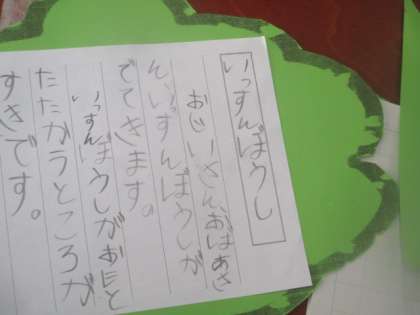 いっすんぼうし
おじいさんおばあさ
んいっすんぼうしが
でてきます。
いっすんぼうしがおにと
たたかうところが
すきです。